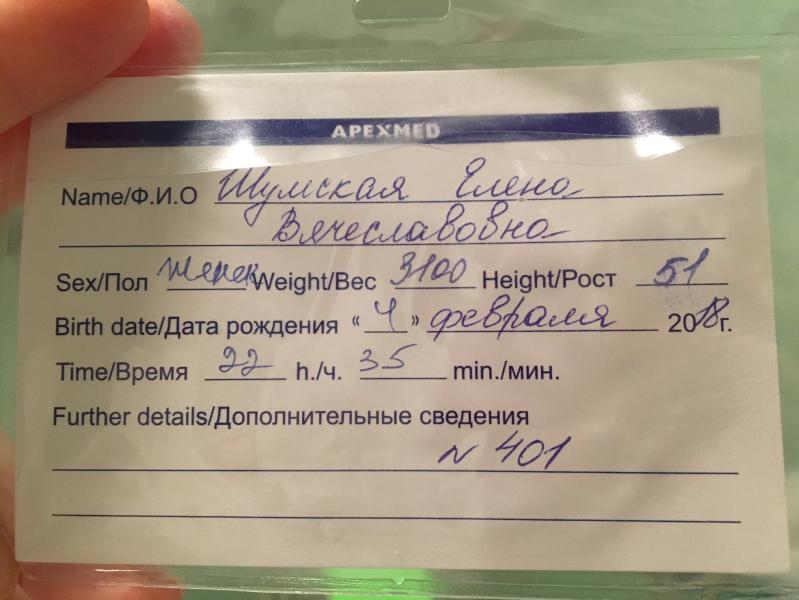 APEXMED
Name/Ф.И.О Шумская Елена
Вячеславовна
Sex/Пол женск Weight/Вес 3100 Height/Рост 51
Birth date/Дата рождения «4» февраля 2018г.
Time/Время 22 h./ч. 35 min./мин.
Further details/Дополнительные сведения
N 401